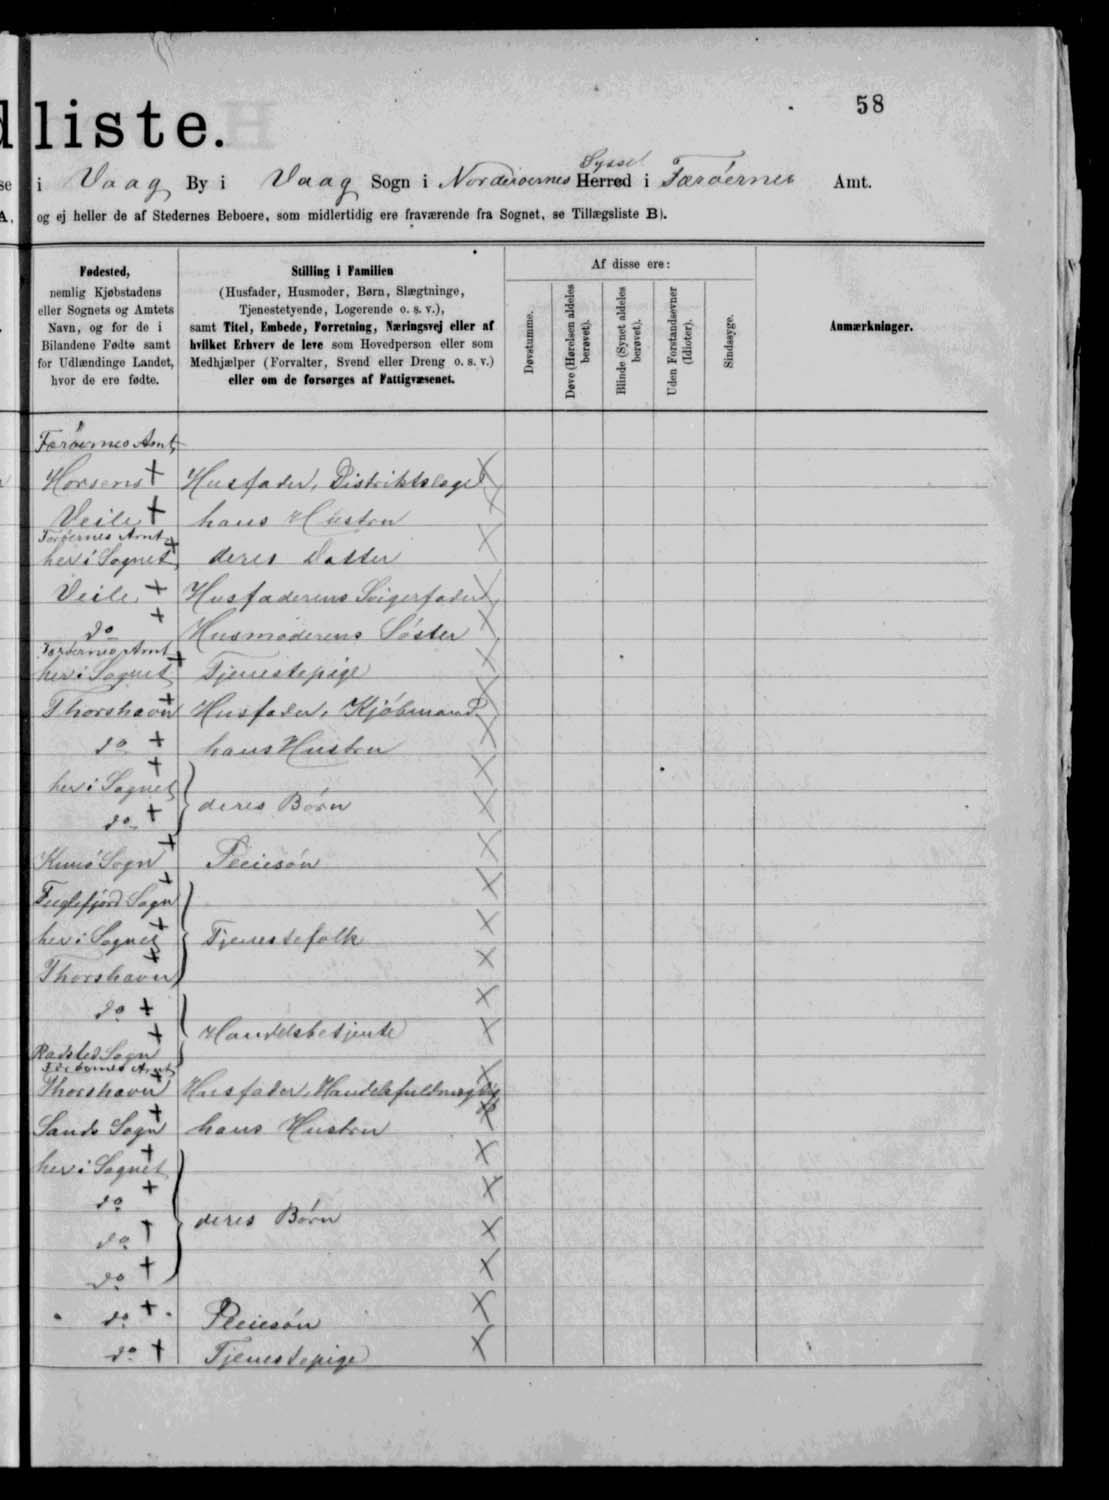 58
liste.
i Vaag By i Vaag Sogn i Norderoernes Syssel Herred i Færöernes Amt.
og ej heller de af Stedernes Beboere, som midlertidig ere fraværende fra Sognet, se Tillægsliste B).
Fødested,
nemlig Kjøbstadens
eller Sognets og Amtets
Navn, og for de i
Bilandene Fødte samt
for Udlændinge Landet,
hvor de ere fødte.
Stilling i Familien
(Husfader, Husmoder, Børn, Slægtninge,
Tjenestetyende, Logerende o. s. v.),
samt Titel, Embede, Forretning, Næringsvej eller af
hvilket Erhverv de leve som Hovedperson eller som
Medhjælper (Forvalter, Svend eller Dreng o. s. v.)
eller om de forsørges af Fattigvæsenet.
Af disse ere:
Døvstumme.
Døve (Hørelsen aldeles
berøvet).
Blinde (Synet aldeles
berøvet).
Uden Forstandsevner
(Idioter).
Sindssyge.
Anmærkninger.
Færöernes Amt,
Horsens + Husfader, Distriktslæge X
Veile + hans Hustru
Færöernes Amt
her i Sognet + deres Datter X
Veile + Husfaderens Svigerfader X
do + Husmoderens Söster X
Færöernes Amt
her i Sognet + Tjenestepige X
Thorshavn + Husfader, Kjöbmand X
do + hans Hustru X
her i Sognet + X
do + deres Börn X
Kunö Sogn + Pleiesön X
Fuglefjord Sogn + X
her i Sognet + Tjenestefolk X
Thorshavn + X
do + X
Radsted Sogn + Handelsbetjente X
Færöernes Amt
Thorshavn + Husfader, Handelsfuldmægtig X
Sands Sogn + hans Hustru X
her i Sognet + X
do + X
do + deres Börn X
do + X
do + Pleiesön X
do + Tjenestepige X